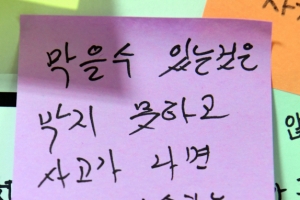 막을수 있는것은
막지 못하고
사고가 나면